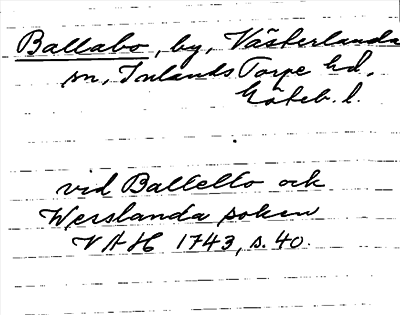 Ballabo, by, Västerlanda
sn, Inlands Torpe hd,
Göteb. l.
vid Ballello och
Werslanda soken
VAH 1743, s. 40.